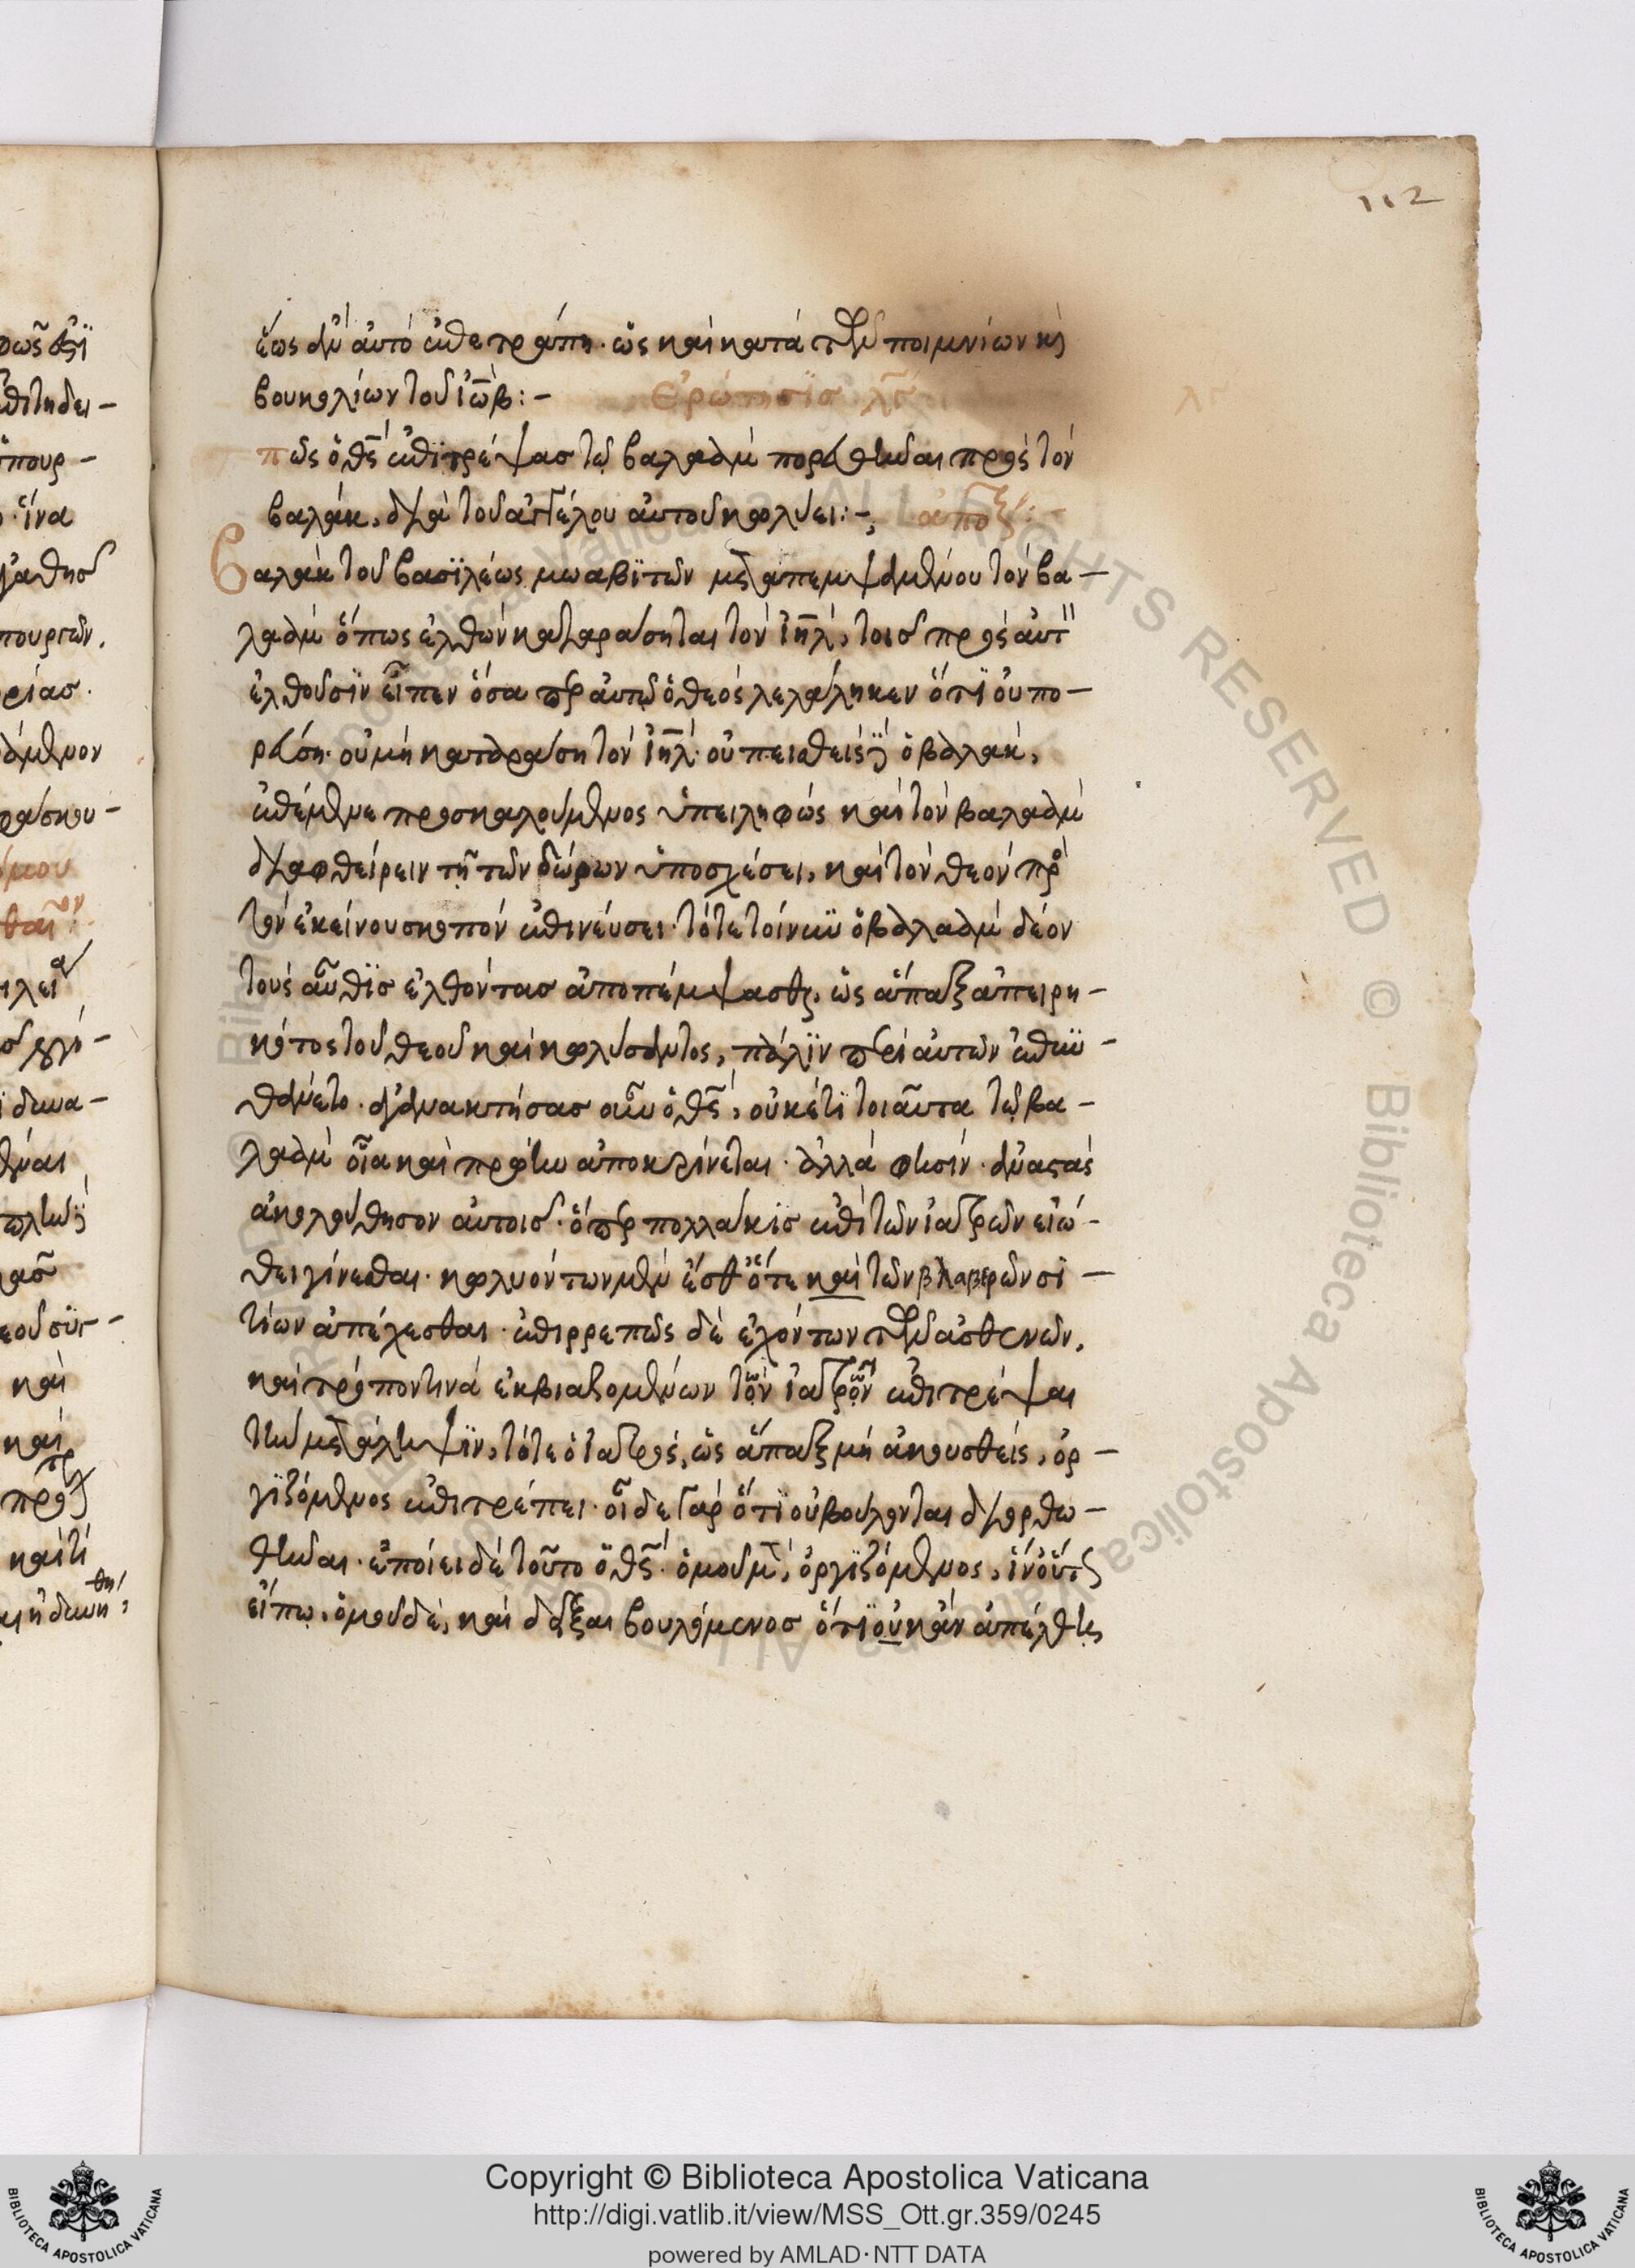 112
ἕως ἂν αὐτὸ ἐπετράπη· ὡς καὶ κατὰ τῶν ποιμνίων καὶ
βουκολίων τοῦ ἰώβ:–
Ἐρώτησις λϛ
πῶς ὁ θς ἐπιτρέψας τῷ βαλαὰμ πορευθῆναι πρὸς τὸν
βαλάκ, διὰ τοῦ ἀγγέλου αὐτοῦ κωλύει:–, ἀπόκ:–
Βαλὰκ τοῦ βασϊλέως μωαβϊτῶν μεταπεμψαμένου τὸν βα–
λαὰμ ὅπως ἐλθὼν καταράσηται τὸν ἰηλ, τοῖς πρὸς αὐτ
ἐλθοῦσϊν εἶπεν ὅσα περ αὐτῷ ὁ θεὸς λελάληκεν ὅτϊ οὐ πο–
ρεύση· οὐ μὴ καταράση τὸν ἰηλ· οὐ πεισθεὶς δὲ ὁ βαλάκ,
ἐπέμενε προσκαλούμενος ὑπειληφὼς καὶ τὸν βαλαὰμ
διαφθείρειν τῇ τῶν δώρων ὑποσχέσει, καὶ τὸν θεὸν πρὸ
τὸν ἐκείνου σκοπὸν ἐπινεύσει· τότε τοίνυν ὁ βαλαὰμ δέον
τοὺς αὖθϊς ἐλθόντας ἀποπέμψασθαι, ὡς ἅπαξ ἀπειρη–
κότος τοῦ θεοῦ καὶ κωλύσαντος, πάλϊν περὶ αὐτῶν ἐπυν–
θάνετο· ἀγανακτήσας οὖν ὁ θς, οὐκέτϊ τοιαῦτα τῷ βα–
λαὰμ οἷα καὶ πρώην ἀποκρίνεται· ἀλλά φησίν· ἀναστὰς
ἀκολούθησον αὐτοῖς· ὅπερ πολλάκϊς ἐπὶ τῶν ἰατρῶν εἰώ–
θει γίνεσθαι· κωλυόντων μὲν ἔσθ' ὅτε καὶ τῶν βλαβερῶν σϊ–
τίων ἀπέχεσθαι· ἐπιρρεπῶς δὲ ἐχόντων τῶν ἀσθενῶν,
καὶ τρόπον τινὰ ἐκβιαζομένων τὸν ἰατρὸν ἐπιτρέψαι
τὴν μετάληψϊν, τότε ὁ ἰατρός, ὡς ἅπαξ μὴ ἀκουσθείς, ὀρ–
γϊζόμενος ἐπιτρέπει· οἶδε γὰρ ὅτϊ οὐ βούλονται διορθω–
θῆναι· ἐποίει δὲ τοῦτο ὁ θς· ὁμοῦ μὲν, ὀργϊζόμενος, ἵν' οὕτως
εἴπω, ὁμοῦ δὲ, καὶ δεῖξαι βουλόμενος ὅτϊ οὐκ ἂν ἀπέλθης
Copyright © Biblioteca Apostolica Vaticana
http://digi.vatlib.it/view/MSS_Ott.gr.359/0245
powered by AMLAD·NTT DATA